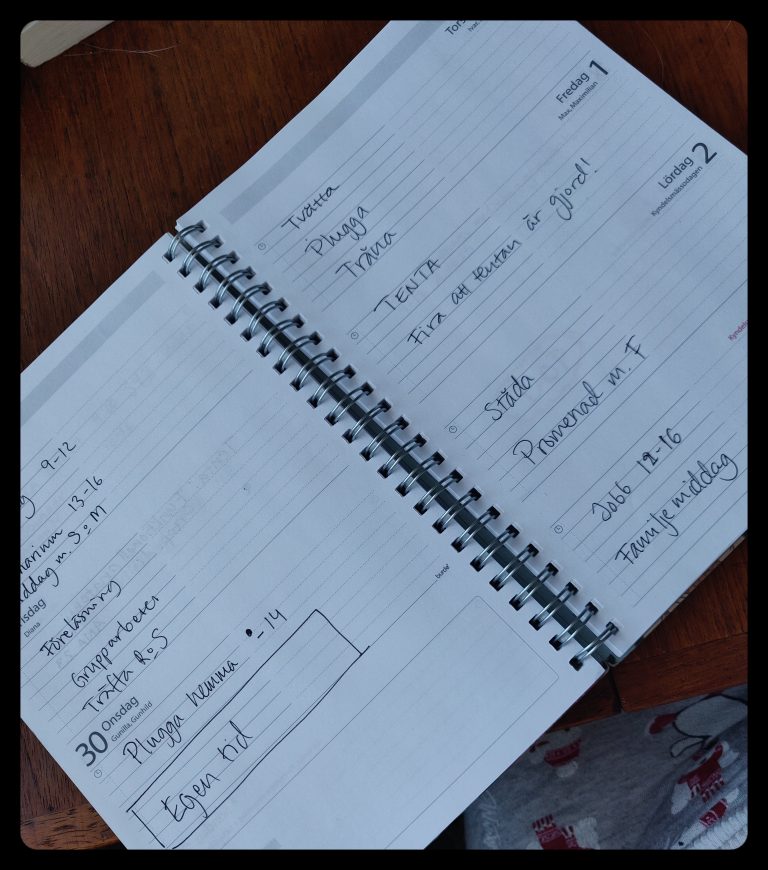 9-12
13-16
m. S o M
Diana
Föreläsning
Grupparbete
Träffa R o S
30 Onsdag
Gunilla, Gunhild
Plugga hemma -14
Egen tid
burde
Tors
Tvätta
Plugga
Träna
Fredag 1
Max, Maximilian
TENTA
Fira att tentan är gjord!
Lördag 2
Kyndelsmässodagen
Städa
Promenad m. F
Jobb 12-16
Familjemiddag